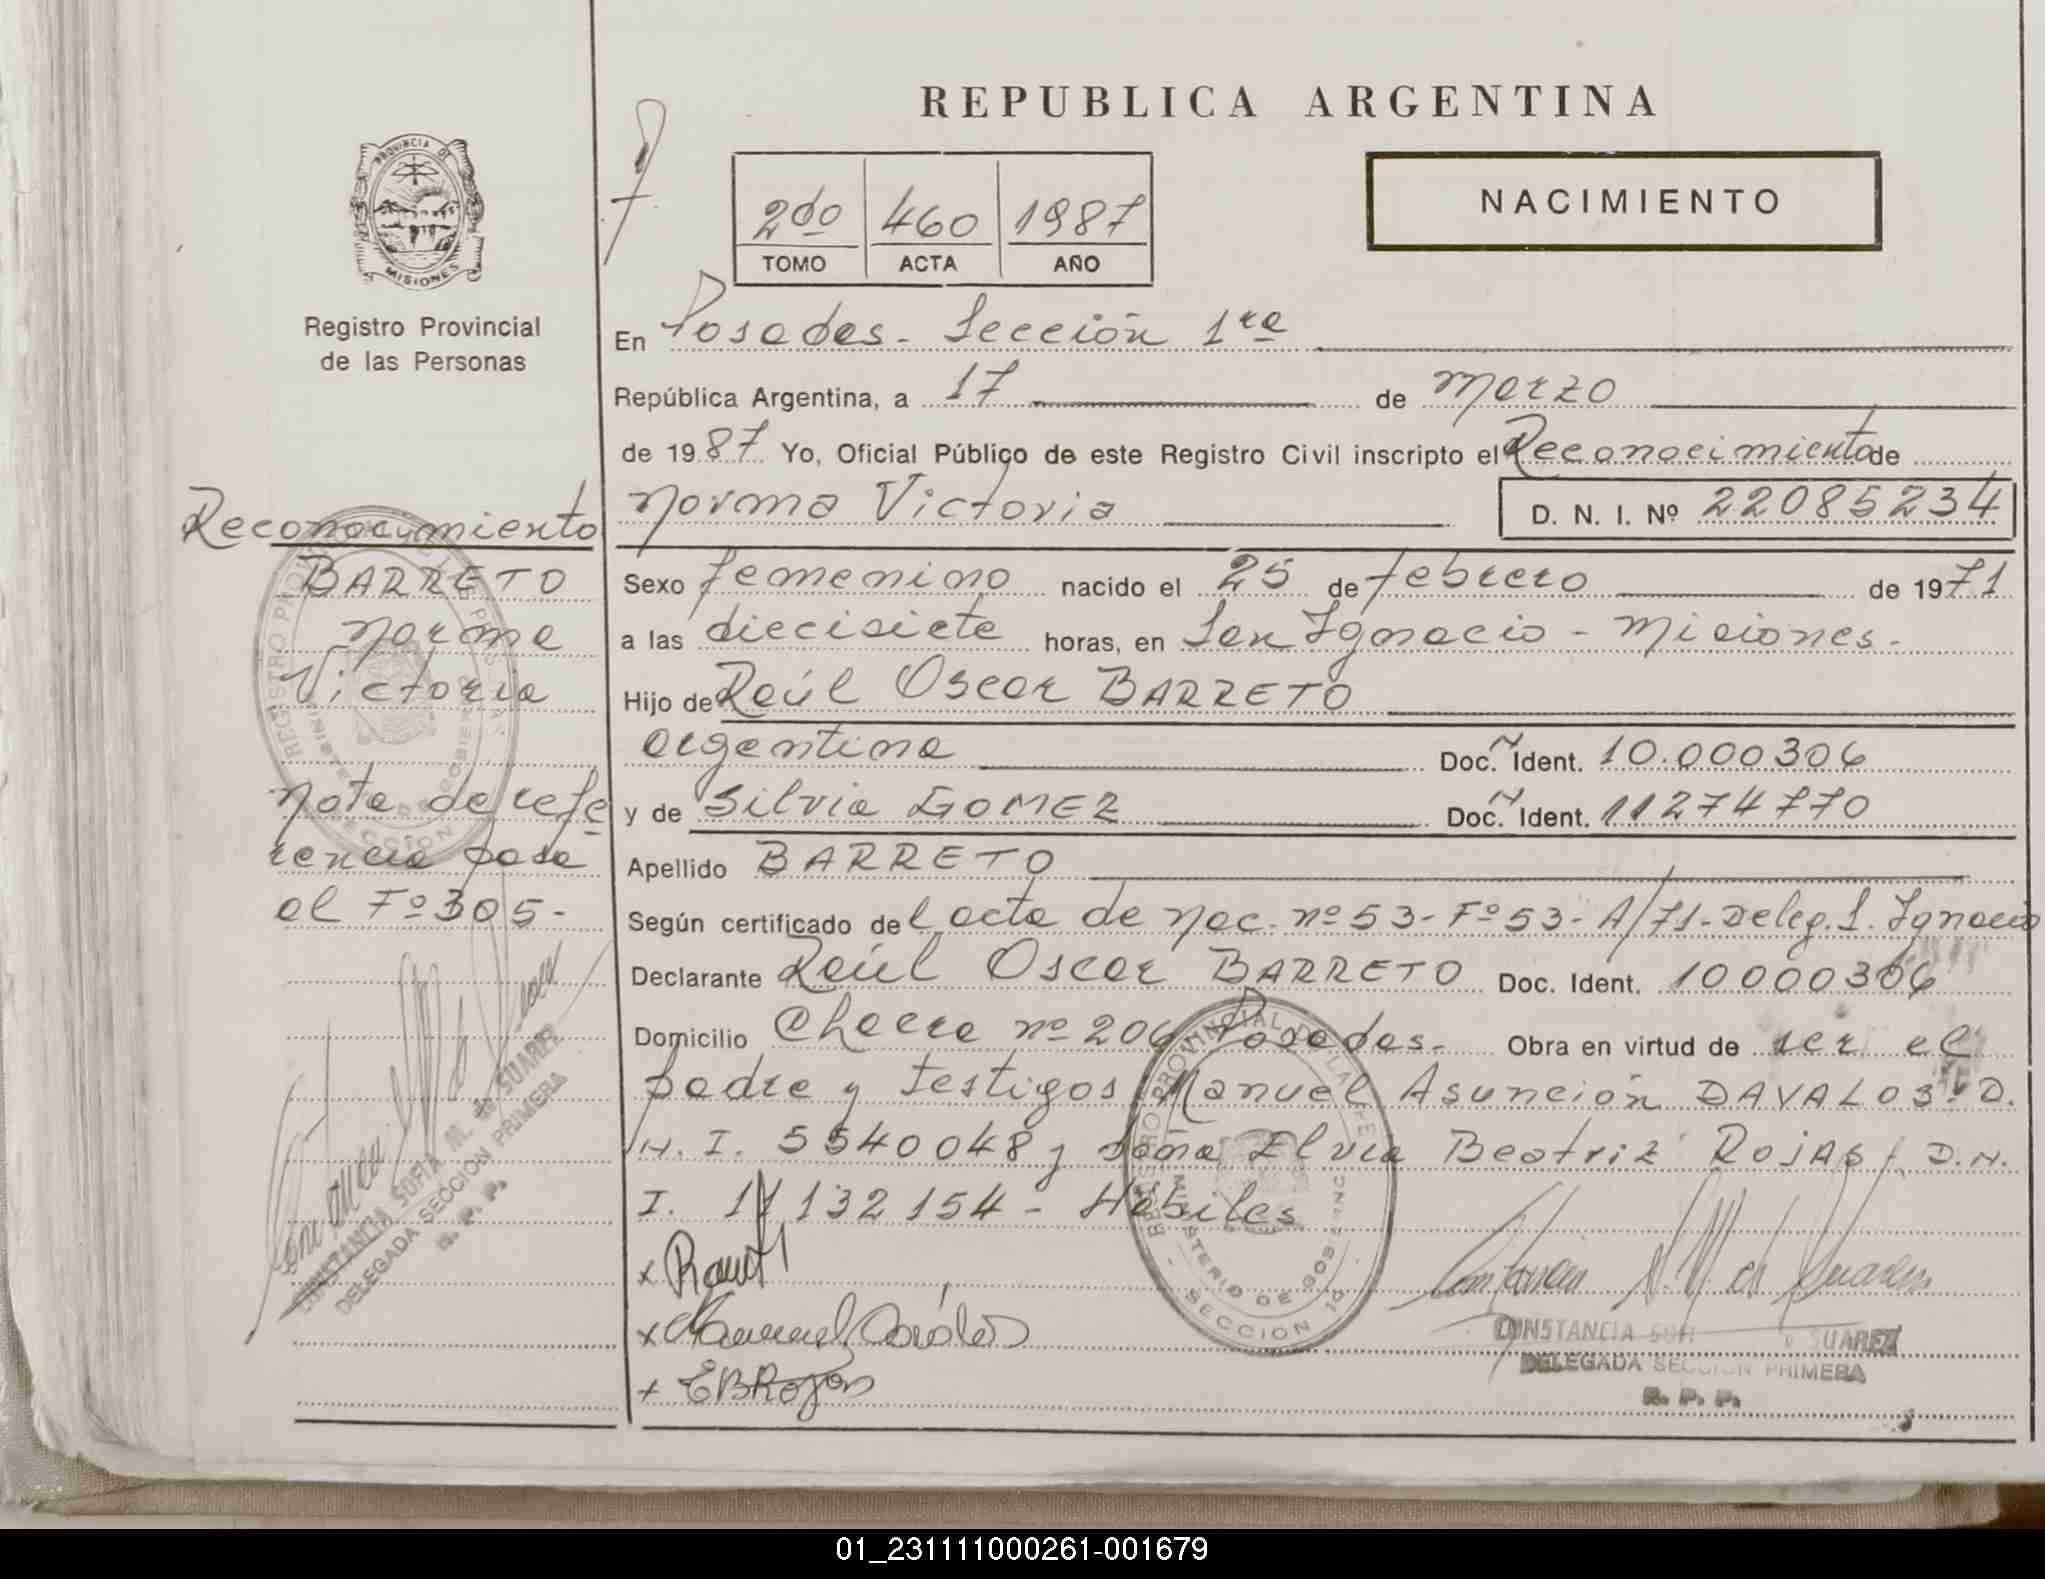 REPUBLICA ARGENTINA
PROVINCIA DE
MISIONES
Registro Provincial
de las Personas
2do 460 1987
TOMO ACTA AÑO
NACIMIENTO
En Posadas - Sección 1ra
República Argentina, a 17 de Marzo
de 1987 Yo, Oficial Público de este Registro Civil inscripto el Reconocimiento de
Norma Victoria D. N. I. Nº 22085234
Sexo femenino nacido el 25 de febrero de 1971
a las diecisiete horas, en San Ignacio - Misiones.
Hijo de Raúl Oscar BARRETO
argentina Doc. Ident. 10.000306
y de Silvia GOMEZ Doc. Ident. 11274770
Apellido BARRETO
Según certificado del acta de nac. nº 53 - Fº 53 - A/71 - Deleg. S. Ignacio
Declarante Raúl Oscar BARRETO Doc. Ident. 10000306
Domicilio Chacra nº 206 Posadas. Obra en virtud de ser el
padre y testigos Manuel Asunción DAVALOS - D.
N. I. 5540048 y doña Elvia Beatriz ROJAS, D.N.
I. 11132154 - Hábiles
x
x Manuel Dávalos
x EBRojas
CONSTANCIA SUAREZ
DELEGADA SECCION PRIMERA
R. P. P.
Reconocimiento
BARRETO
Norma
Victoria
Nota de refe
rencia pasa
al Fº 305-
CONSTANCIA SOFIA M. de SUAREZ
DELEGADA SECCION PRIMERA
R. P. P.
REGISTRO PROVINCIAL DE LAS PERSONAS
MINISTERIO DE GOBIERNO
SECCION
REGISTRO PROVINCIAL DE LAS PERSONAS
MINISTERIO DE GOBIERNO
SECCION 1a
01_231111000261-001679